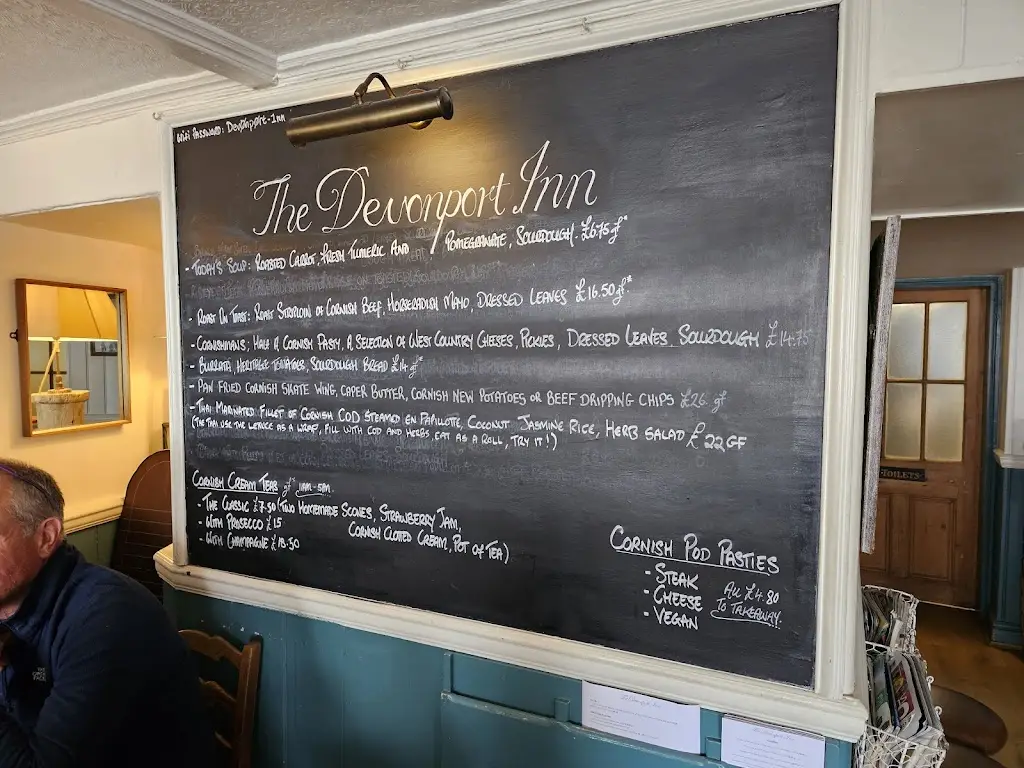 WiFi Password: Devonport-Inn
The Devonport Inn
- Today's Soup: Roasted Carrot, Fresh Tumeric And Pomegranate, Sourdough. £6.75 gf*
- Roast On Toast: Roast Striploin of Cornish Beef, Horseradish Mayo, Dressed Leaves £16.50 gf*
- Cornishmans; Half A Cornish Pasty, A Selection of West Country Cheeses, Pickles, Dressed Leaves Sourdough £14.75
- Burrata, Heritage Tomatoes, Sourdough Bread £14 gf*
- Pan Fried Cornish Skate Wing, Caper Butter, Cornish New Potatoes or Beef Dripping Chips £26. gf
- Thai Marinated Fillet of Cornish Cod Steamed En Papillote, Coconut Jasmine Rice, Herb Salad £22 GF
(The Thai use the lettuce as a wrap, fill with cod and herbs eat as a roll, try it!)
Cornish Cream Teas gf* 11am-5pm.
- The Classic £7.50 (Two Homemade Scones, Strawberry Jam,
- With Prosecco £15 Cornish Cloted Cream, Pot of Tea)
- With Champagne £18.50
Cornish Pod Pasties
- Steak
- Cheese
- Vegan
All £4.80
To Takeaway.
Toilets